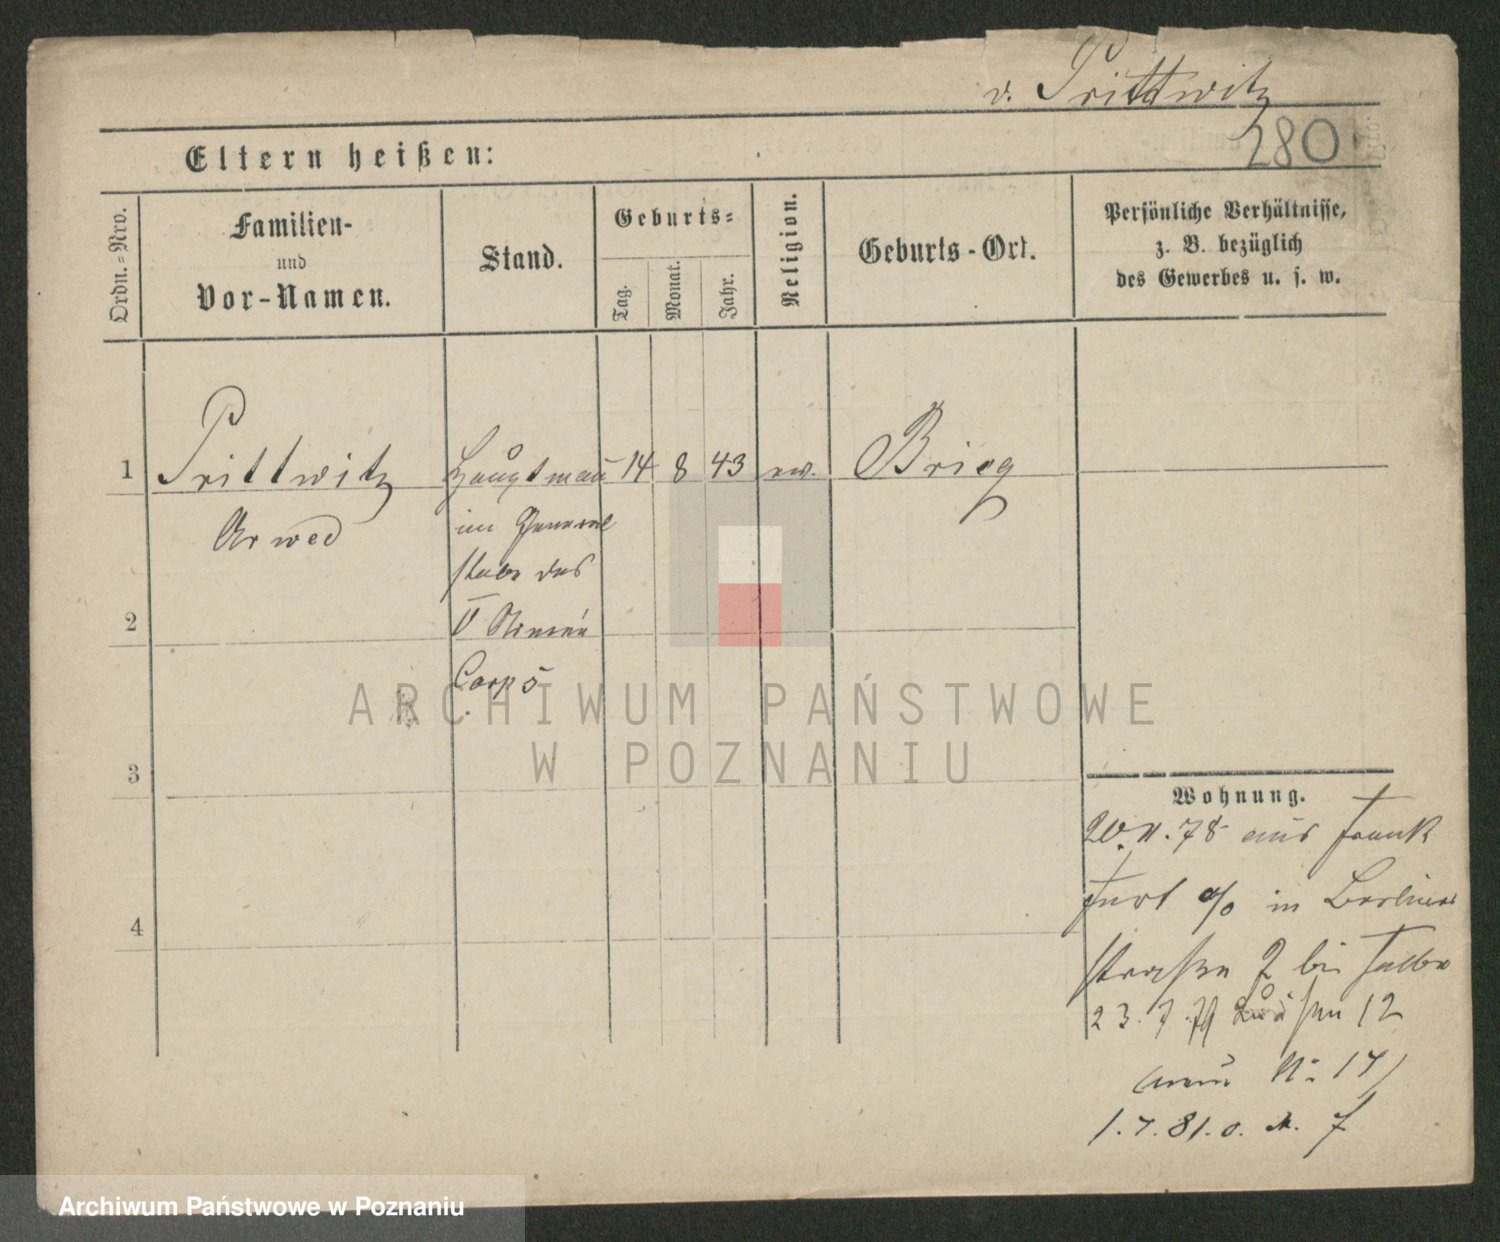 v. Prittwitz
280
Eltern heißen:
Ordn.=Nro.
Familien-
und
Vor-Namen.
Stand.
Geburts=
Tag.
Monat.
Jahr.
Religion.
Geburts-Ort.
Persönliche Verhältnisse,
z. B. bezüglich
des Gewerbes u. s. w.
1 Prittwitz Hauptmañ 14 8 43 ev. Brieg
Arwed im General
stabe des
2 V Armée
Corps
ARCHIWUM PAŃSTWOWE
W POZNANIU
3
4
Wohnung.
20.11.78 aus Frank
furt a/o in Berliner
straße 2 bei
23.7.79 12
(neue N: 17)
1.7.81.
Archiwum Państwowe w Poznaniu